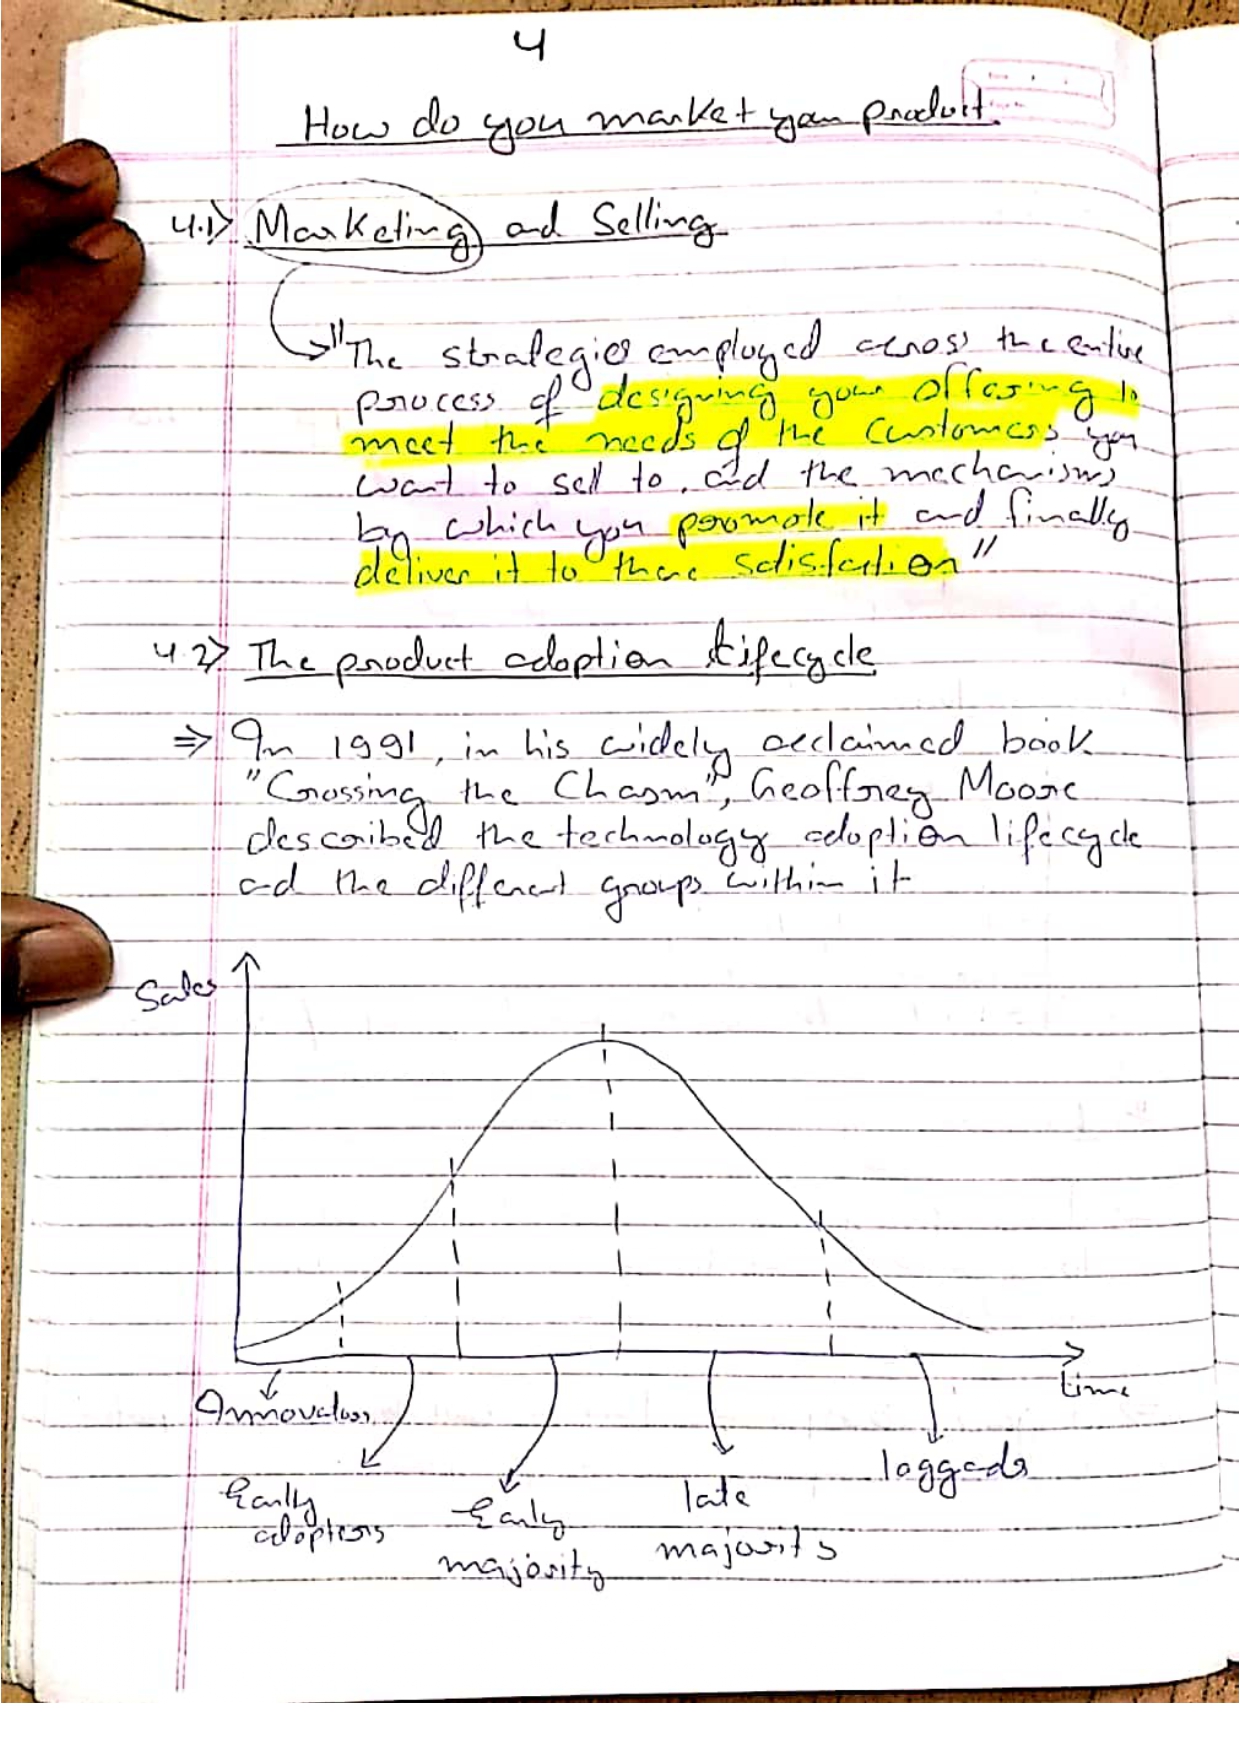 4
How do you market your product.
4.1) Marketing and Selling
"The strategies employed across the entire
process of designing your offering to
meet the needs of the customers you
want to sell to, and the mechanisms
by which you promote it and finally
deliver it to there satisfaction"
4.2) The product adoption lifecycle
⇒ In 1991, in his widely acclaimed book
"Crossing the Chasm", Geoffrey Moore
described the technology adoption lifecycle
and the different groups within it
Sales
time
Innovators
laggards
Early
adopters
Early
majority
late
majority